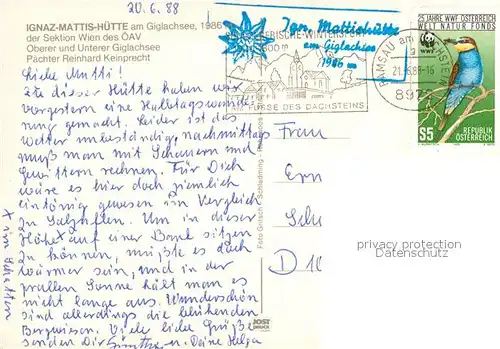 20.6.88
IGNAZ-MATTIS-HÜTTE am Giglachsee, 1986
der Sektion Wien des ÖAV
Oberer und Unterer Giglachsee
Pächter Reinhard Keinprecht
Liebe Mutti!
Zu dieser Hütte haben wir
vorgestern eine Halbtagswande-
rung gemacht. Leider ist das
Wetter unbeständig, nachmittags
muß man mit Schauern und
Gewittern rechnen. Für Dich
wäre es hier doch ziemlich
eintönig gewesen im Vergleich
zu Salzuflen. Um in dieser
Höhe x auf einer Bank sitzen
zu können, müßte es doch
wärmer sein, und in der
prallen Sonne hält man es
nicht lange aus. Wunderschön
sind allerdings die blühenden
Bergwiesen. Viele liebe Grüße
senden Dir Günther u. Deine Helga
x im Schatten
Ign. Mattishütte
am Giglachsee
1986 m
WINTERSPORT
AM FUSSE DES DACHSTEINS
RAMSAU am DACHSTEIN
a
21.-6.88-
897
25 JAHRE WWF ÖSTERREICH
WELT NATUR FONDS
WWF
S5
REPUBLIK
ÖSTERREICH
Frau
Ern
Schu
D 10
Foto Gritsch, Schladming
JOST
DRUCK
privacy protection
watermark